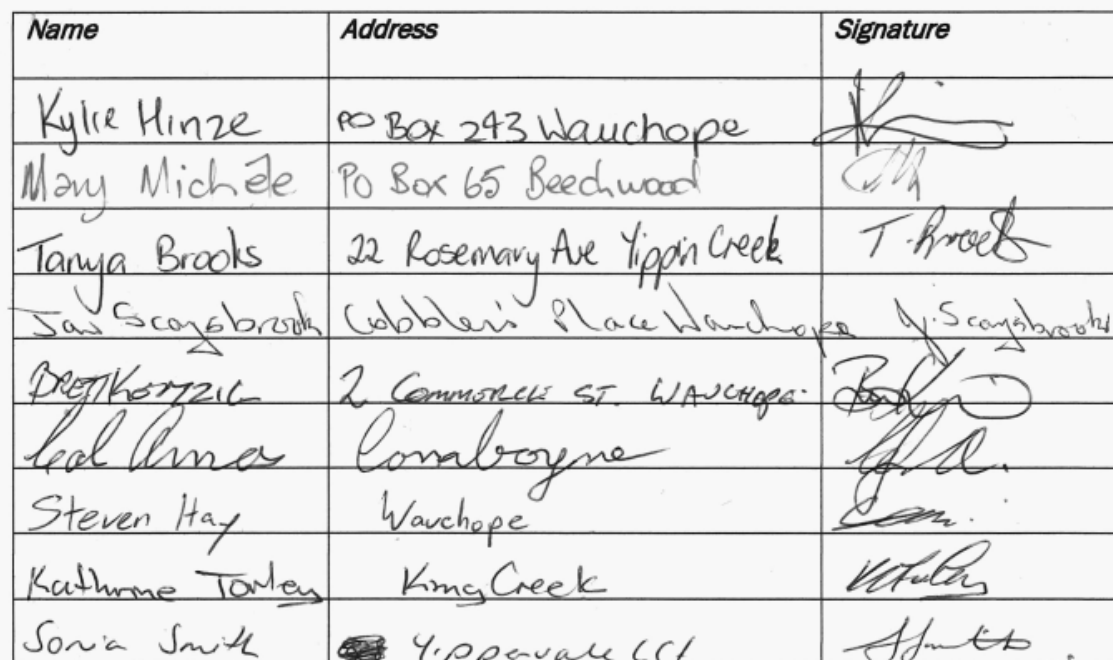 Name Address Signature
Kylie Hinze PO Box 243 Wauchope
Mary Michele PO Box 65 Beechwood
Tanya Brooks 22 Rosemary Ave Yippin Creek T. Brooks
Jan Scaysbrook Cobblers Place Wauchope J. Scaysbrook
BRETT 2 COMMERCE ST. WAUCHOPE
Steven Hay Wauchope
Kathrine King Creek
Sonia Smith